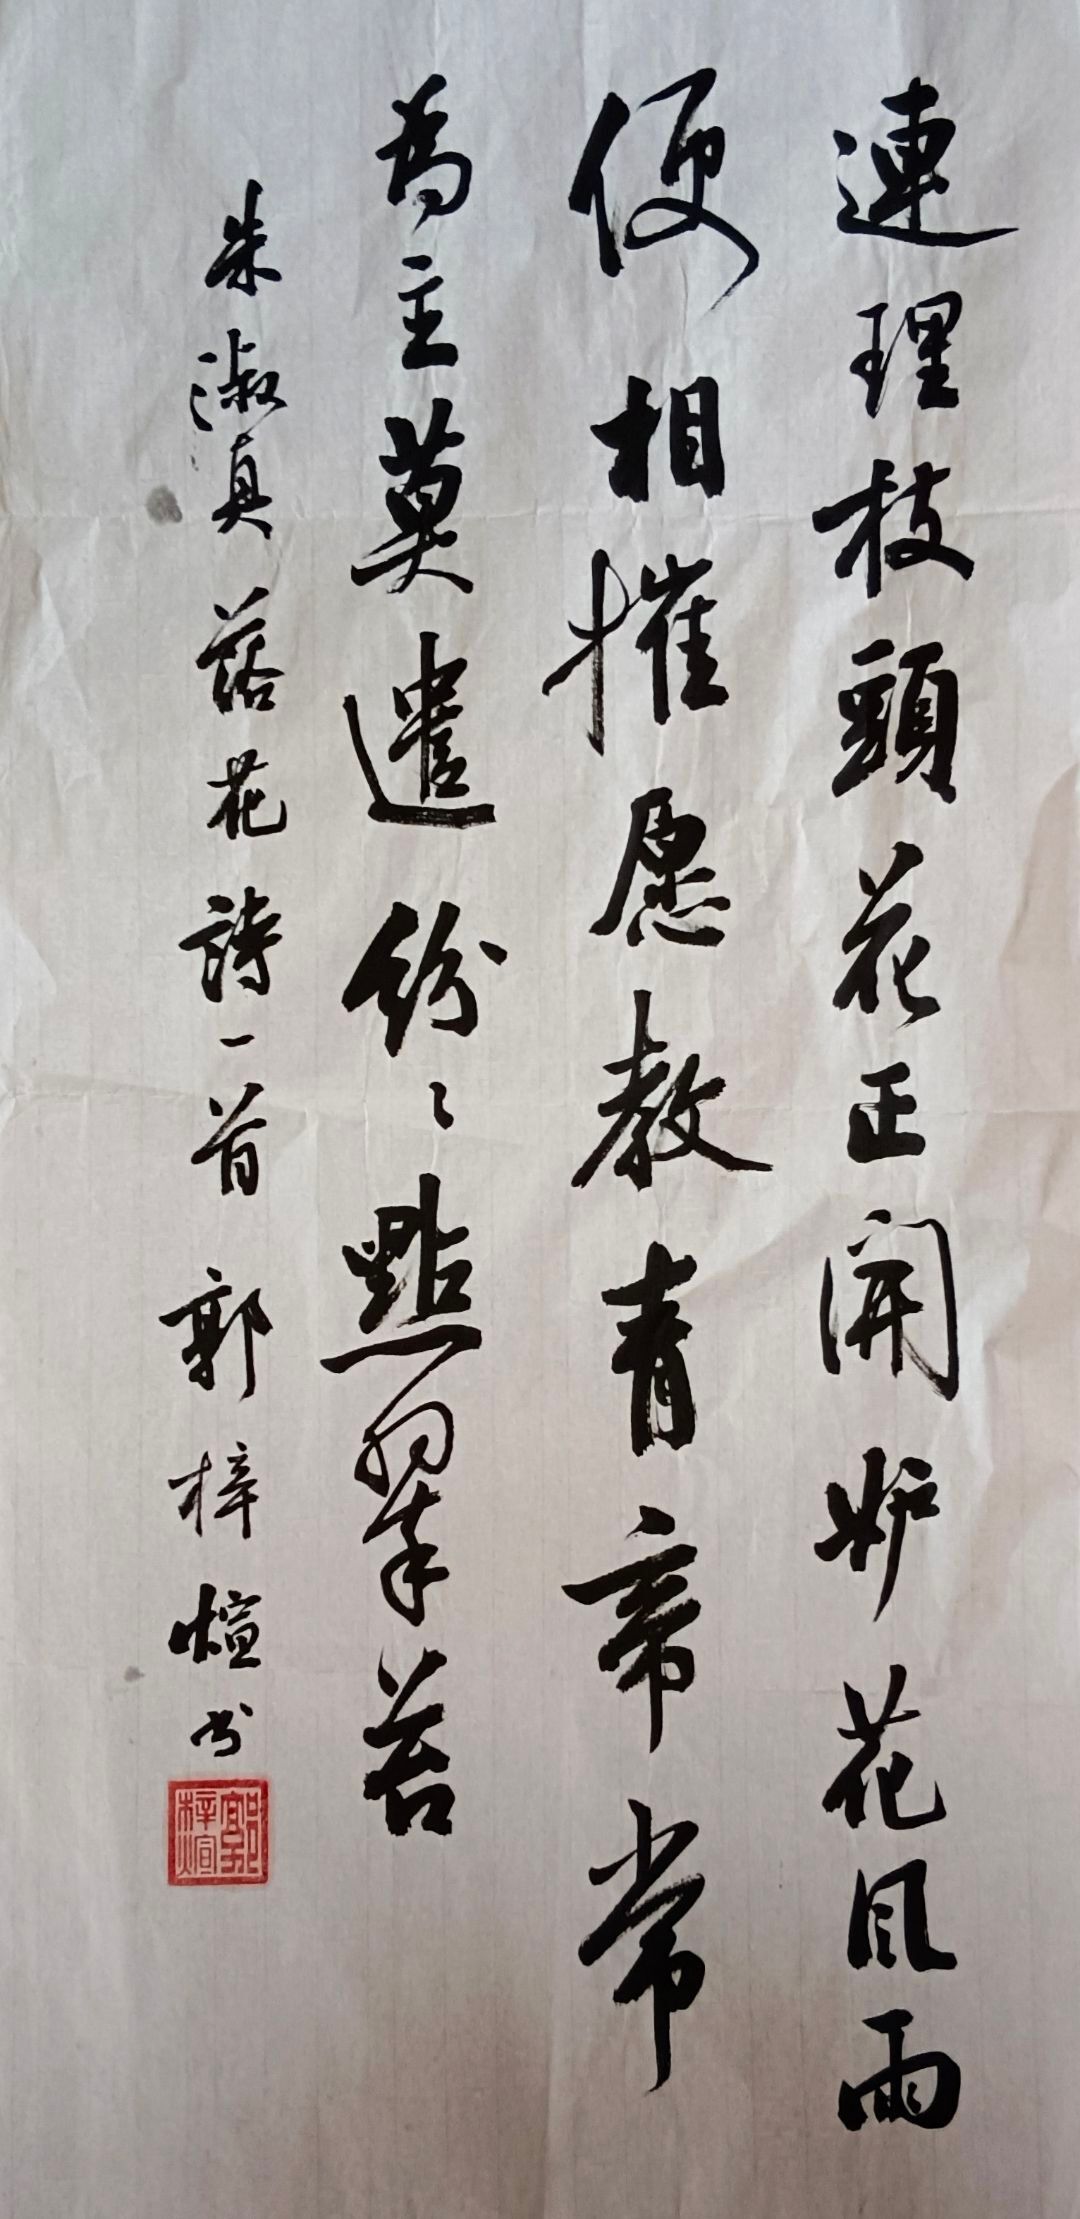 連理枝頭花正開妒花風雨
便相摧愿教青帝常
為主莫遣紛〻點翠苔
朱淑真落花詩一首郭梓煊书
郭梓煊